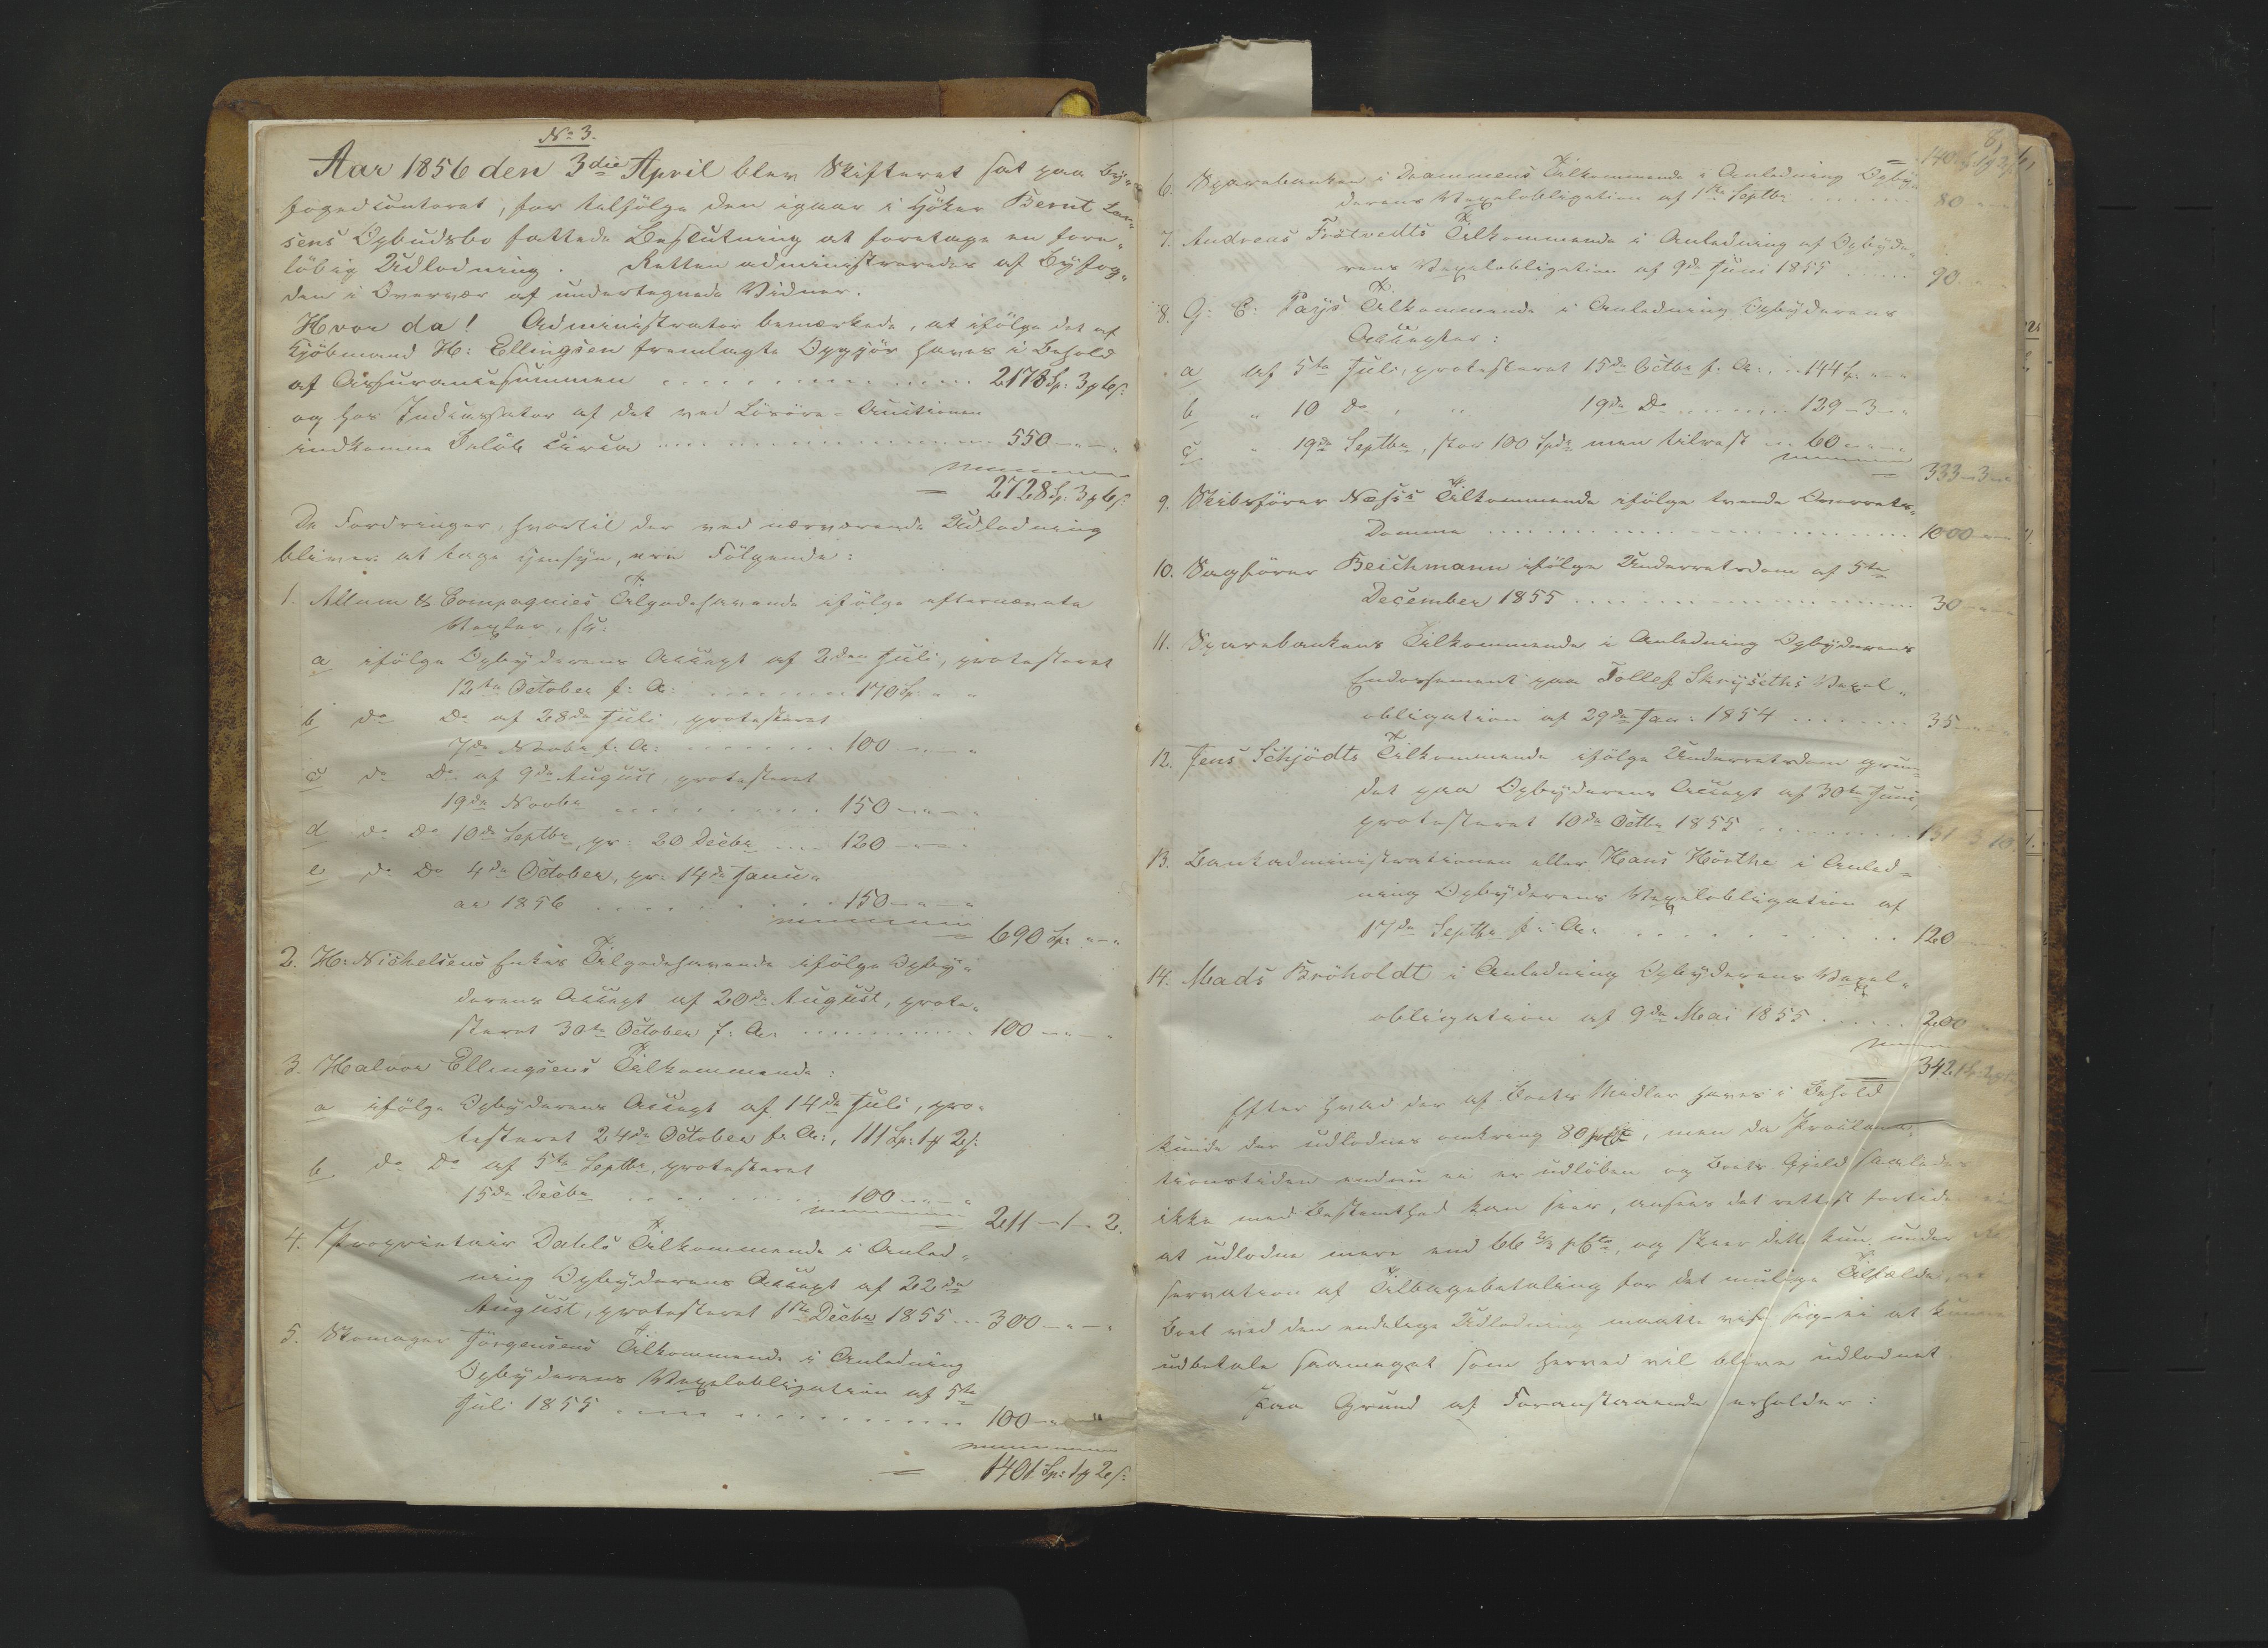 No 3.
Aar 1856 den 3die April blev Skifteret sat paa By-
fogedcontoret, for telfölge den igaar i Höker Bernt Lar-
sens Opbudsbo fattede Beslutning at foretage en fore-
löbig Udlodning. Retten administreredes af Byfog-
den i Overvær af undertegnede Vidner.
Hvor da! Administrator bemærkede, at ifölge det af
Kjöbmand H: Ellingsen fremlagte Opgjör haves i Behold
af Assurancesummen 2178 Sp: 3 # 6 s:
og hos Incassator af det ved Lösöre-Auctionen
indkomne Belöb circa 550 - " - "
= 2728 Sp: 3 # 6 s:
De Fordringer, hvortil der ved nærværende Udlodning
bliver at tage Hensyn, ere Fölgende:
1. Allum & Compagnies Tilgodehavende ifölge efternævnte
Vexler, sc:
a ifölge Opbyderens Accept af 2den Juli, protesteret
12te October f: A: 170 Sp: " "
b do Do af 28de Juli, protesteret
7de Novbr f: A: 100 - " - "
c do Do af 9de August, protesteret
19de Novbr 150 - " - "
d do Do 10de Septbr, pr: 20 Decbr 120 - " - "
e do Do 4de October, pr: 14de Janu-
ar 1856 150 - " - "
= 690 Sp: " - "
2. H: Nickelsens Enkes Tilgodehavende ifölge Opby-
derens Accept af 20de August, prote-
steret 30te October f: A: 100 - " - "
3. Halvor Ellingsens Tilkommende:
a ifölge Opbyderens Accept af 14de Juli, pro-
testeret 24de October f: A:, 111 Sp: 1 # 2 s:
b do Do af 5te Septbr, protesteret
15de Decbr 100 - " - "
= 211 - 1 - 2.
4. Proprietair Dahls Tilkommende i Anled-
ning Opbyderens Accept af 22de
August, protesteret 1ste Decbr 1855 300 - " - "
5. Skomager Jörgensens Tilkommende i Anledning
Opbyderens Vexelobligation af 5te
Juli 1855 100 - " - "
= 1401 Sp: 1 # 2 s:
8,
6. Sparebanken i Drammens Tilkommende i Anledning Opby-
derens Vexelobligation af 1ste Septbr 80
7. Andreas Frötvedts Tilkommende i Anledning af Opbyde-
rens Vexelobligation af 9de Juni 1855 90
8. G: C: Pays Tilkommende i Anledning Opbyderens
Accepter:
a af 5te Juli, protesteret 15de Octbr f: A: 144 Sp: " - "
b " 10 do " 19de Do 129 - 3 - "
c " 19de Septbr, stor 100 Spd men tilrest 60 - " - "
= 333 - 3 - "
9. Skibsförer Næss's Tilkommende ifölge tvende Overrets-
Domme 1000 - " - "
10. Sagförer Beichmann ifölge Underretsdom af 5te
December 1855 30 - " - "
11. Sparebankens Tilkommende i Anledning Opbyderens
Endossement paa Tollef Skryseths Vexel-
obligation af 29de Jan: 1854 35 - " - "
12. Jens Schjödts Tilkommende ifölge Underretsdom grun-
det paa Opbyderens Accept af 30te Juni,
protesteret 10de Octbr 1855 131 3 10
13. Bankadministrationen eller Hans Hörthe i Anled-
ning Opbyderens Vexelobligation af
17de Septbr f: A: 120
14. Mads Bröholdt i Anledning Opbyderens Vexel-
obligation af 9de Mai 1855 200
= 3421
Efter hvad der af Boets Midler haves i Behold
kunde der udlodnes omkring 80 , men da Proclama-
tionstiden endnu ei er udlöben og Boets Gjeld saaledes
ikke med Bestemthed kan sees, ansees det rettest fortiden ei
at udlodne mere end 66 2/3 pCto, og skeer dette kun under Re-
servation af Tilbagebetaling for det mulige Tilfælde, at
Boet ved den endelige Udlodning maatte vise sig ei at kunne
udbetale saameget som herved vil blive udlodnet.
Paa Grund af Foranstaaende erholder: